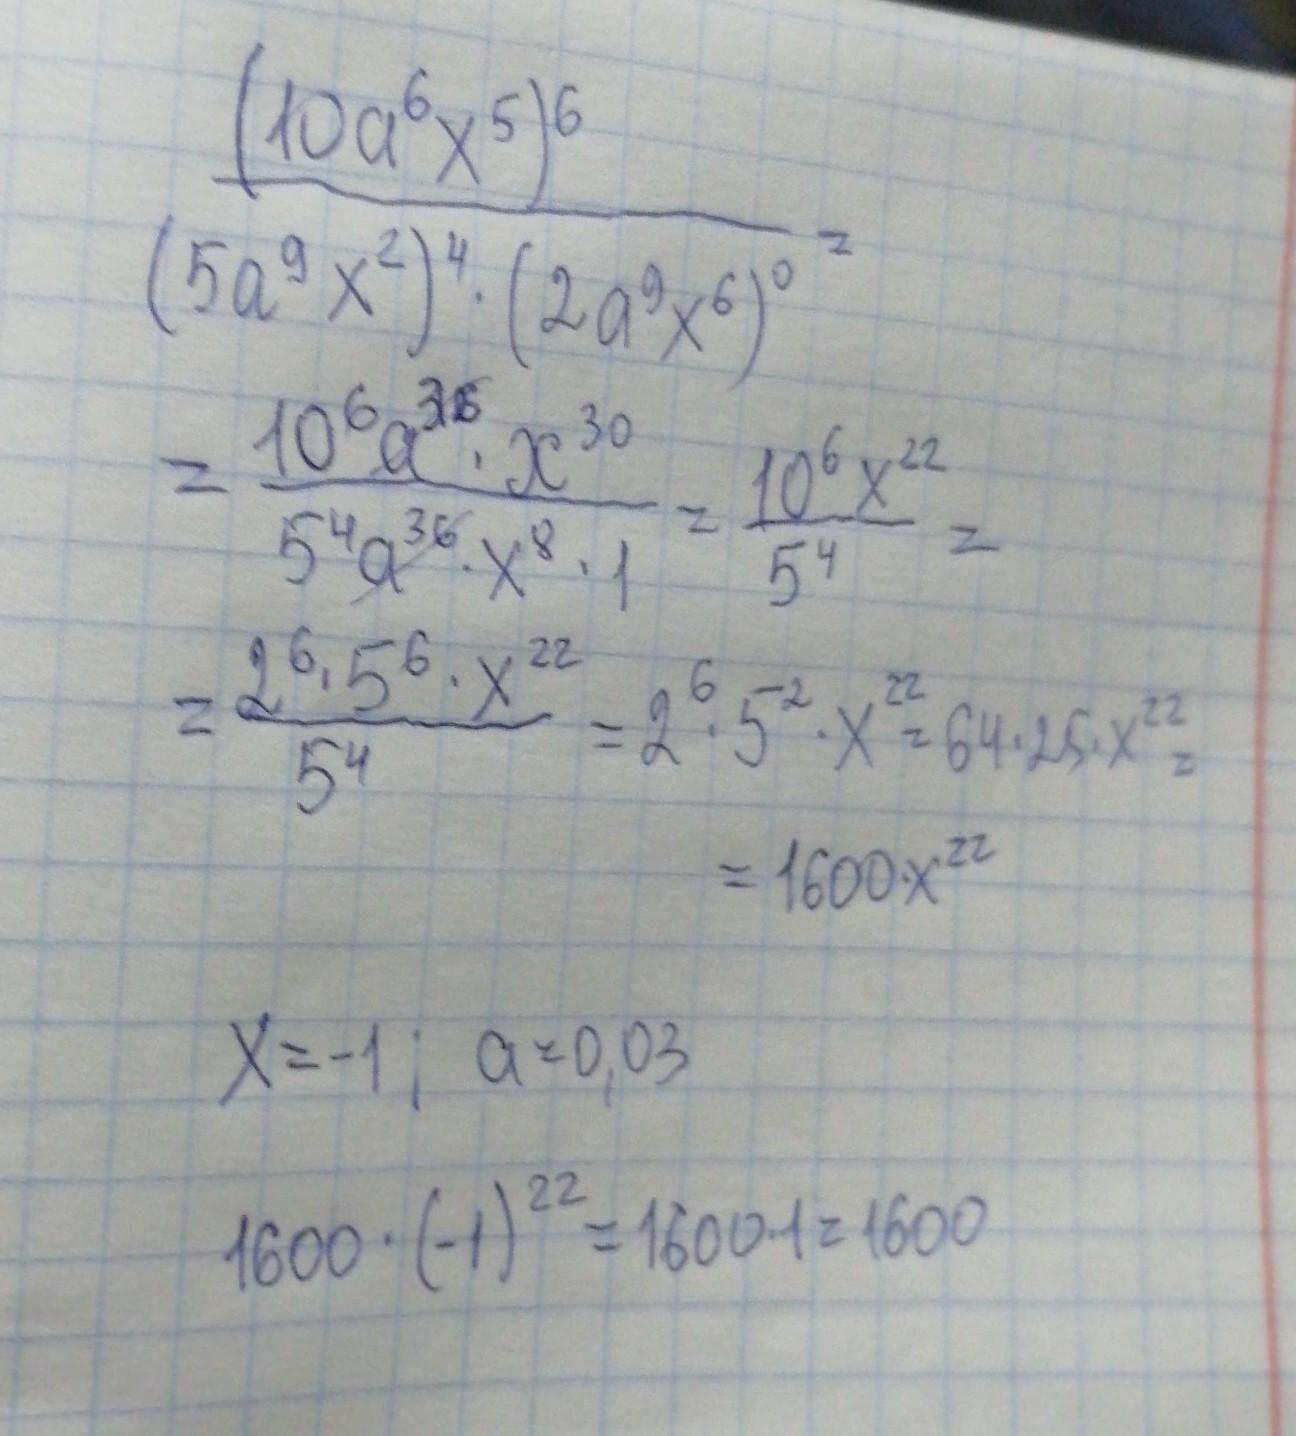 (10a⁶x⁵)⁶
(5a⁹x²)⁴·(2a⁹x⁶)⁰ =
= 10⁶a³⁶·x³⁰ / 5⁴a³⁶·x⁸·1 = 10⁶x²² / 5⁴ =
= 2⁶·5⁶·x²² / 5⁴ = 2⁶·5²·x²² = 64·25·x²² =
= 1600·x²²
x=-1; a=0,03
1600·(-1)²² = 1600·1 = 1600